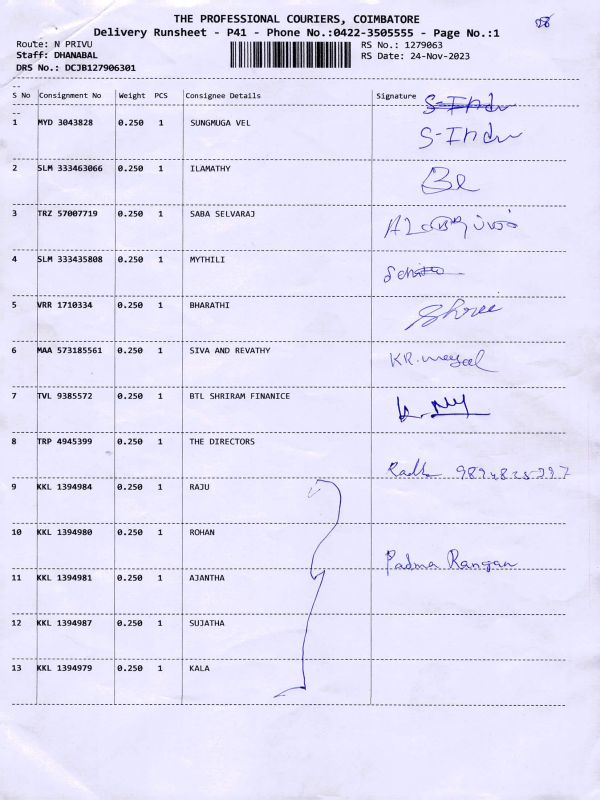 THE PROFESSIONAL COURIERS, COIMBATORE
Delivery Runsheet - P41 - Phone No.:0422-3505555 - Page No.:1
Route: N PRIVU RS No.: 1279063
Staff: DHANABAL RS Date: 24-Nov-2023
DRS No.: DCJB127906301
S No Consignment No Weight PCS Consignee Details Signature S-Indu
1 MYD 3043828 0.250 1 SUNGMUGA VEL S-Indu
2 SLM 333463066 0.250 1 ILAMATHY
3 TRZ 57007719 0.250 1 SABA SELVARAJ
4 SLM 333435808 0.250 1 MYTHILI
5 VRR 1710334 0.250 1 BHARATHI
6 MAA 573185561 0.250 1 SIVA AND REVATHY
7 TVL 9385572 0.250 1 BTL SHRIRAM FINANICE
8 TRP 4945399 0.250 1 THE DIRECTORS
9 KKL 1394984 0.250 1 RAJU
10 KKL 1394980 0.250 1 ROHAN
Padma Rangan
11 KKL 1394981 0.250 1 AJANTHA
12 KKL 1394987 0.250 1 SUJATHA
13 KKL 1394979 0.250 1 KALA